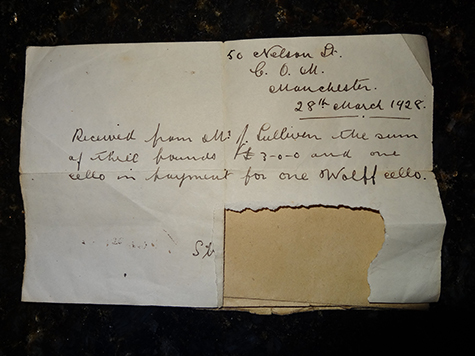 50 Nelson St.
C. O. M.
Manchester.
28th March 1928.
Received from Mr J. Sullivan the sum
of three pounds £3-0-0 and one
cello in payment for one Wolff cello.